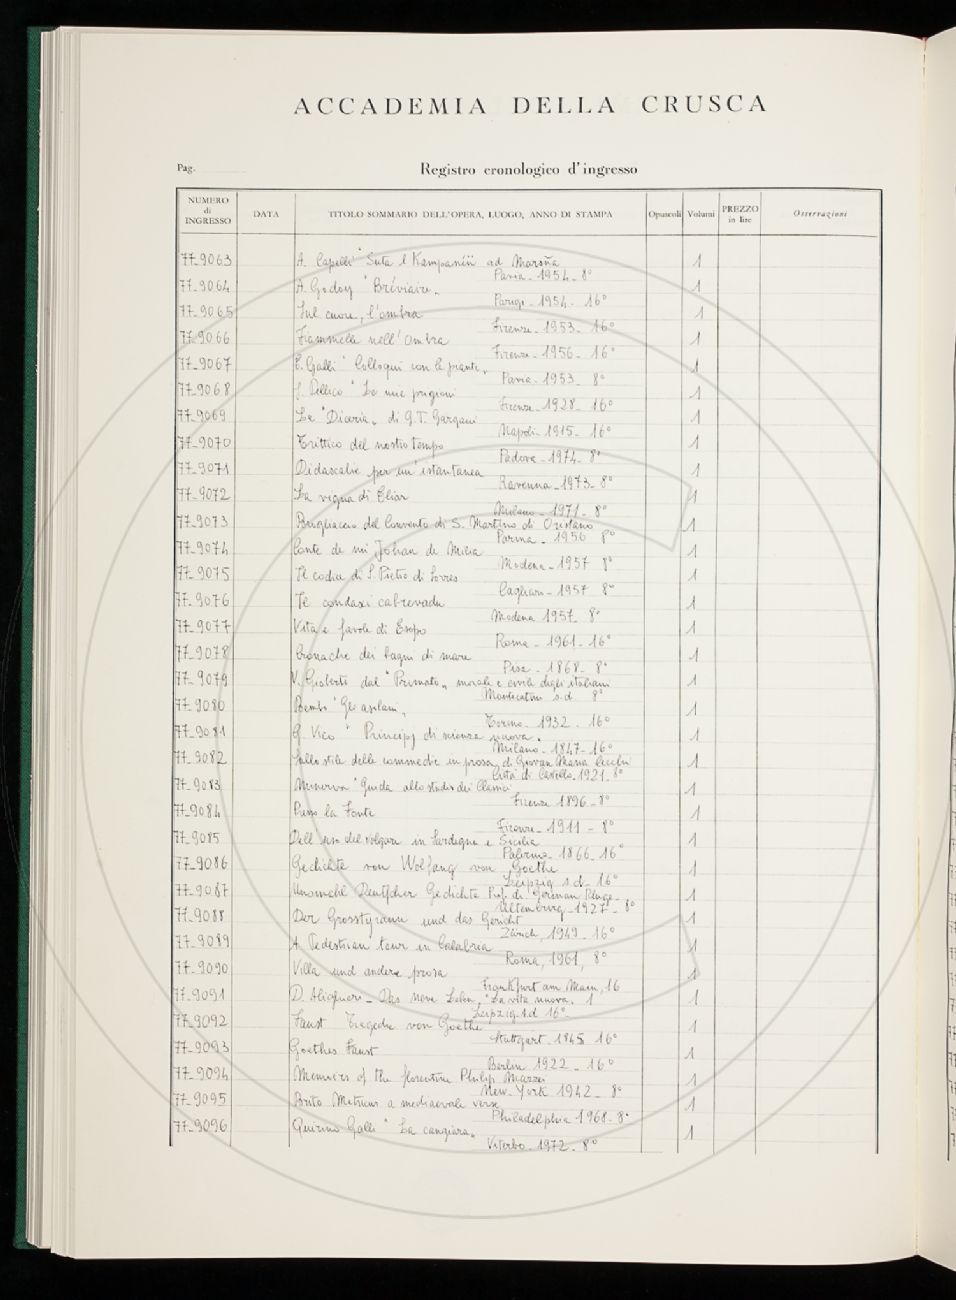 ACCADEMIA DELLA CRUSCA
Pag.
Registro cronologico d'ingresso
NUMERO di INGRESSO
DATA
TITOLO SOMMARIO DELL'OPERA, LUOGO, ANNO DI STAMPA
Opuscoli
Volumi
PREZZO in lire
Osservazioni
77-9063 A. Capelli " Suta l Kampanéii ad Marsña 1
Pavia - 1954 - 8°
77-9064 A. Godoy " Bréviaire„ 1
Parigi - 1954 - 16°
77-9065 Sul cuore, l'ombra 1
Firenze - 1953 - 16°
77-9066 Fiammella nell'ombra 1
Firenze - 1956 - 16°
77-9067 E. Galli " Colloqui con le piante„ 1
Pavia - 1953 - 8°
77-9068 S. Pellico " Le mie prigioni 1
Firenze - 1928 - 16°
77-9069 La "Diceria„ di G.T. Gargani 1
Napoli - 1915 - 16°
77-9070 Trittico del nostro tempo 1
Padova - 1974 - 8°
77-9071 Didascalie per un'istantanea 1
Ravenna - 1973 - 8°
77-9072 La vigna di Eliar 1
Milano - 1971 - 8°
77-9073 Brogliaccio del Convento di S. Martino di Oristano 1
Parma - 1956 8°
77-9074 Conte de mi Johan de Milia 1
Modena - 1957 8°
77-9075 Il codice di S. Pietro di Sorres 1
Cagliari - 1957 8°
77-9076 Il condaxi cabrevadu 1
Modena 1957 - 8°
77-9077 Vita e favole di Esopo 1
Roma - 1961 - 16°
77-9078 Cronache dei bagni di mare 1
Pisa - 1868 - 8°
77-9079 V. Gioberti dal "Primato„ morale e civile degli italiani 1
Montecatini s.d. 8°
77-9080 Bembo "Gli asolani„ 1
Torino - 1932 - 16°
77-9081 G. Vico " Principj di scienza nuova„ 1
Milano - 1847 - 16°
77-9082 Sullo stile delle commedie in prosa di Giovan Maria Cecchi 1
Città di Castello - 1921 - 8°
77-9083 Minerva "Guida allo studio dei Classici 1
Firenze 1896 - 8°
77-9084 Presso la Fonte 1
Firenze - 1911 - 8°
77-9085 Dell'uso del volgare in Sardegna e Sicilia 1
Palermo - 1866 - 16°
77-9086 Gedichte von Wolfang von Goethe 1
Leipzig s.d. 16°
77-9087 Deutscher Gedichte Prof. dr. German 1
Altenburg - 1927 - 8°
77-9088 Der Grosstyrann und das Gericht 1
Zürich, 1949 - 16°
77-9089 A Pedestrian tour in Calabria 1
Roma, 1961, 8°
77-9090 Villa und andere prosa 1
Frankfurt am Main, 16
77-9091 D. Alighieri - Das neue Leben, "La vita nuova„ 1 1
Leipzig s.d 16°
77-9092 Faust Tragedie von Goethe 1
Stuttgart - 1845 16°
77-9093 Goethes Faust 1
Berlin 1922 - 16°
77-9094 Memoirs of the florentine Philip Mazzei 1
New-York 1942 - 8°
77-9095 Brito Metricus a mediaevale verse 1
Philadelphia 1968 - 8°
77-9096 Quirino Galli " La cangiara„ 1
Viterbo - 1972 - 8°